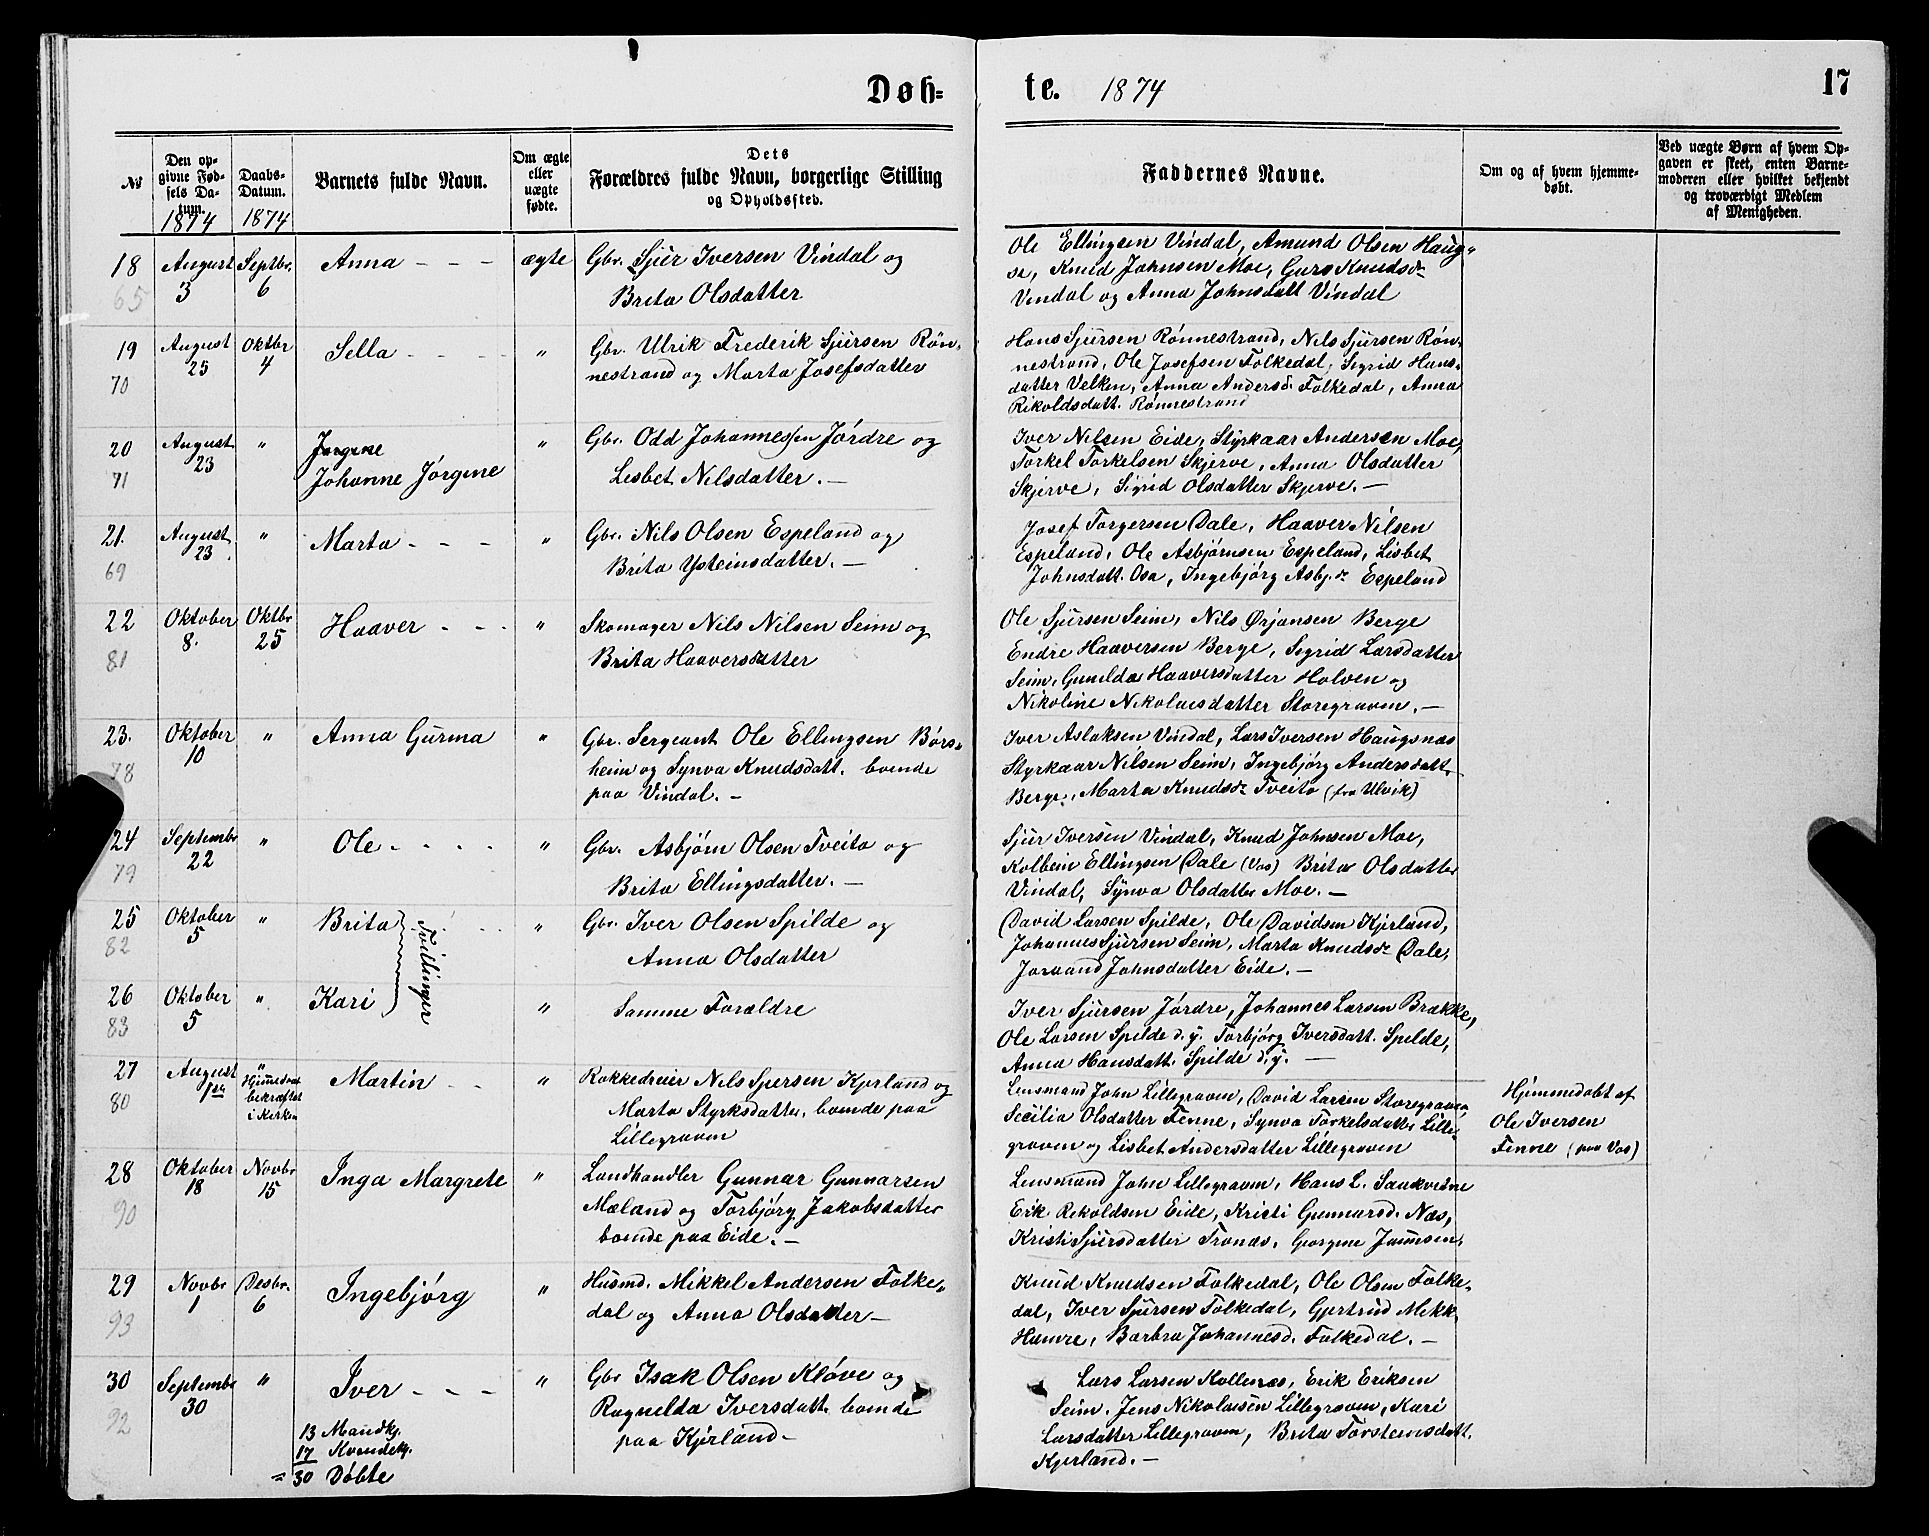 Døb=
te. 1874
17
No
Den op-
givne Fød-
sels Da-
tum.
1874
Daabs-
Datum.
1874
Barnets fulde Navn.
Om ægte
eller
uægte
fødte.
Dets
Forældres fulde Navn, borgerlige Stilling
og Opholdssted.
Faddernes Navne.
Om og af hvem hjemme-
døbt.
Ved uægte Børn af hvem Op-
gaven er skeet, enten Barne-
moderen eller hvilket bekjendt
og troværdigt Medlem
af Menigheden.
18
65
August
3
Septbr.
6
Anna - - -
ægte
Gbr. Sjur Iversen Vindal og
Brita Olsdatter
Ole Ellingsen Vindal, Amund Olsen Haug-
se, Knud Johnsen Moe, Guro Knudsdr
Vindal og Anna Johnsdatt Vindal
19
70
August
25
Oktbr
4
Sella - - - -
"
Gbr. Ulrik Frederik Sjursen Røn-
nestrand og Marta Josefsdatter
Hans Sjursen Rønnestrand, Nils Sjursen Røn-
nestrand, Ole Josefsen Folkedal, Sigrid Hans-
datter Velken, Anna Andersd. Folkedal, Anna
Rikoldsdatt. Rønnestrand
20
71
August
23
"
Jørgene
Johanne Jørgene
"
Gbr. Odd Johannessen Jördre og
Lisbet Nilsdatter. —
Iver Nilsen Eide, Styrkaar Andersen Moe,
Torkel Torkelsen Skjerve, Anna Olsdatter
Skjerve, Sigrid Olsdatter Skjerve. —
21.
69
August
23
"
Marta - - -
"
Gbr. Nils Olsen Espeland og
Brita Ysteinsdatter. —
Josef Torgersen Dale, Haaver Nilsen
Espeland, Ole Asbjørnsen Espeland, Lisbet
Johnsdatt. Osa, Ingebjørg Asbj.dr Espeland
22
81
Oktober
8.
Oktbr
25
Haaver - - -
"
Skomager Nils Nilsen Seim og
Brita Haaversdatter
Ole Sjursen Seim, Nils Ørjansen Berge
Endre Haaversen Berge, Sigrid Larsdatter
Seim, Gunilda Haaversdatter Holven og
Nikoline Nikolaisdatter Storegraven. —
23.
78
Oktober
10
"
Anna Gurina
"
Gbr. Sergeant Ole Ellingsen Børs-
heim og Synva Knudsdatt. boende
paa Vindal. —
Iver Aslaksen Vindal, Lars Iversen Haugsnæs
Styrkaar Nilsen Seim, Ingebjørg Andersdatt.
Berge, Marta Knudsdr Tveito (fra Ulvik)
24
79
Septembr
22
"
Ole - - - -
"
Gbr. Asbjörn Olsen Tveito og
Brita Ellingsdatter. —
Sjur Iversen Vindal, Knud Johnsen Moe,
Kolbein Ellingsen Dale (Vos) Brita Olsdatter
Vindal, Synva Olsdatter Moe. —
25
82
Oktober
5
"
Brita
Tvillinger
"
Gbr. Iver Olsen Spilde og
Anna Olsdatter
David Larsen Spilde, Ole Davidsen Kjerland,
Johannes Sjursen Seim, Marta Knudsdr Dale,
Joraand Johnsdatter Eide. —
26
83
Oktober
5
"
Kari
"
Samme Forældre
Iver Sjursen Jördre, Johannes Larsen Brække,
Ole Larsen Spilde d.y. Torbjørg Iversdatt. Spilde,
Anna Hansdatt. Spilde d.y. —
27
80
August
"
Hjemmedaab
bekræftet
i Kirken
Martin - -
"
Rokkedreier Nils Spersen Kjerland og
Marta Styrksdatter, boende paa
Lillegraven
Lensmand John Lillegraven, David Larsen Storegraven
Secilia Olsdatter Fenne, Synva Torkelsdatter Lille-
graven og Lisbet Andersdatter Lillegraven
Hjemmedøbt af
Ole Iversen
Fenne (paa Vos)
28
90
Oktober
18
Novbr
15
Inga Margrete
"
Landhandler Gunnar Gunnarsen
Mæland og Torbjörg Jakobsdatter
boende paa Eide. —
Lensmand John Lillegraven, Hans L. Sandvedne
Erik Rikoldsen Eide, Kristi Gunnarsd. Næs,
Kristi Sjursdatter Tronæs, Georgine
29
93
Novbr
1
Desbr.
6
Ingebjörg
"
Husmd. Mikkel Andersen Folke-
dal og Anna Olsdatter —
Knud Knudsen Folkedal, Ole Olsen Folke-
dal, Iver Sjursen Folkedal, Gjertrud Mikk.
Hamre, Barbra Johannesd. Folkedal. —
30
92
Septembr
30
"
Iver - - -
"
Gbr Isak Olsen Klöve og
Ragnelda Iversdatt. boende
paa Kjerland —
Lars Larsen Kollenæs, Erik Eriksen
Seim, Jens Nikolaisen Lillegraven, Kari
Larsdatter Lillegraven, Brita Torsteinsdatt.
Kjerland. —
13 Mandkj.
17 Kvindekj.
= 30 Döbte